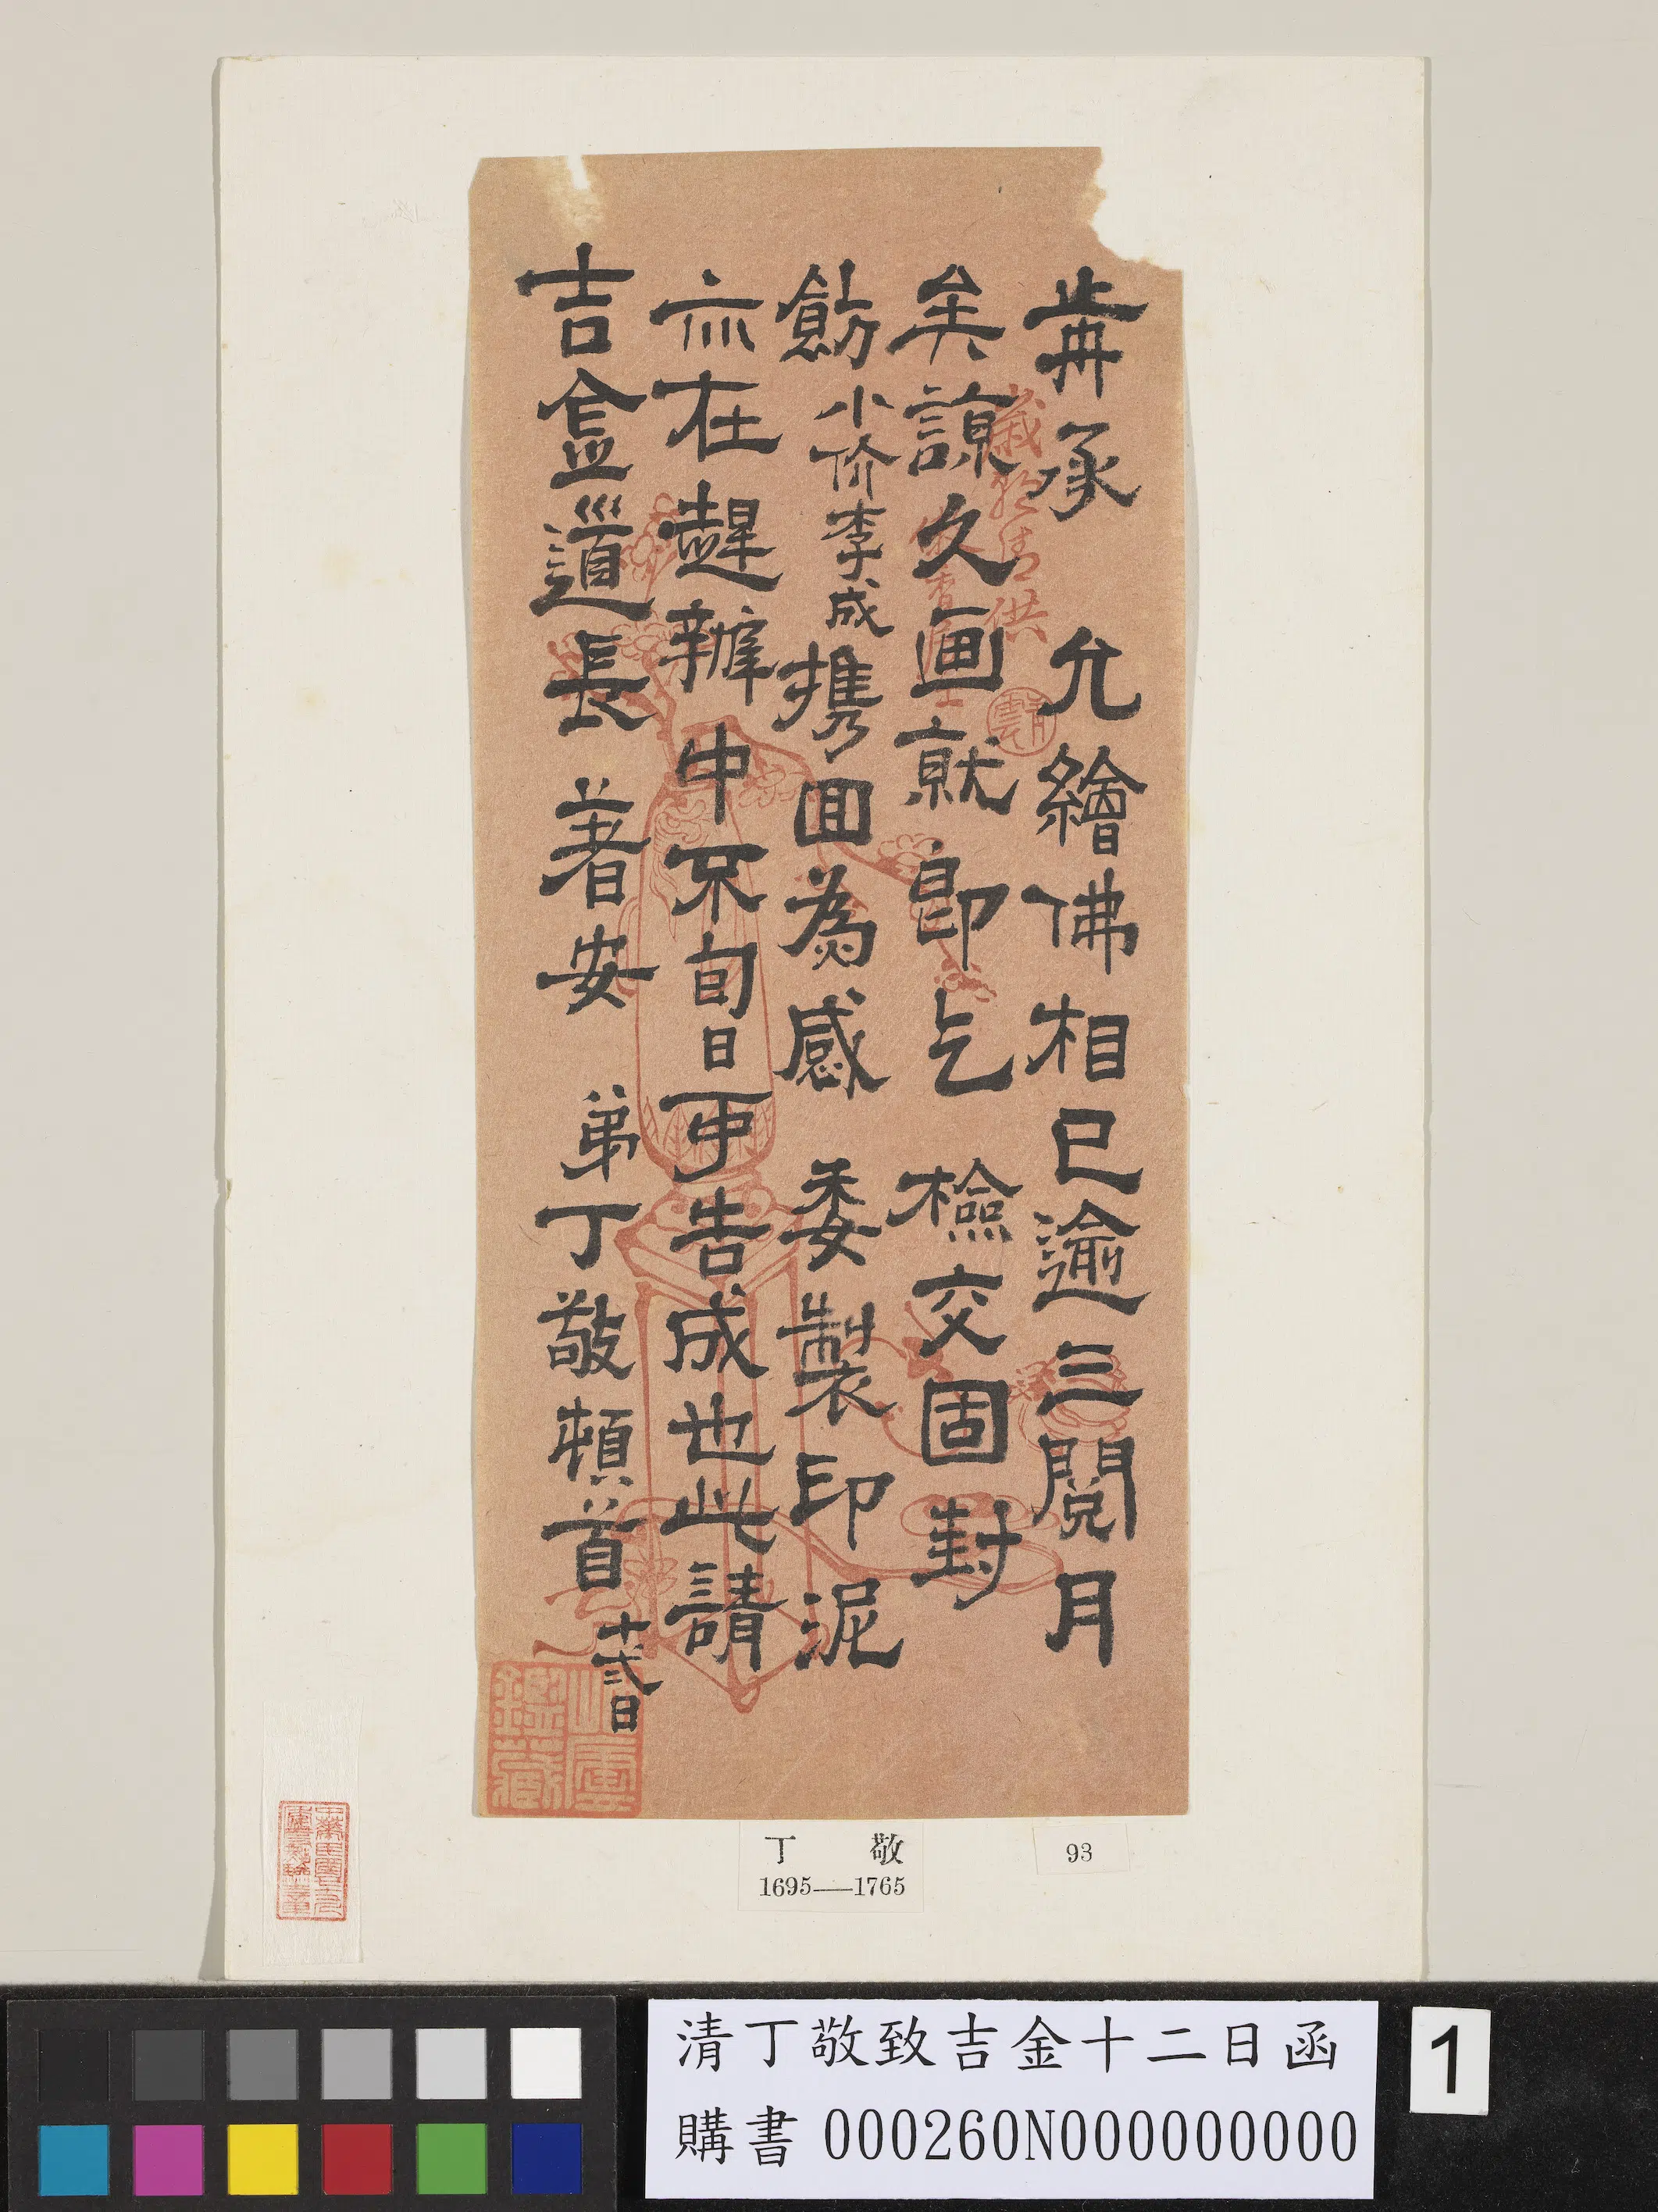 歬承 允繪佛相已逾三閱月
矣諒久画就即乞 檢交固封
飭小价李成攜回為感 委製印泥
亦在趕辦中不旬日可告成也此請
吉金道長 著安 弟丁敬頓首 十弍日
歲朝清供
丁 敬
1695—1765
93
清丁敬致吉金十二日函
購書 000260N000000000
1